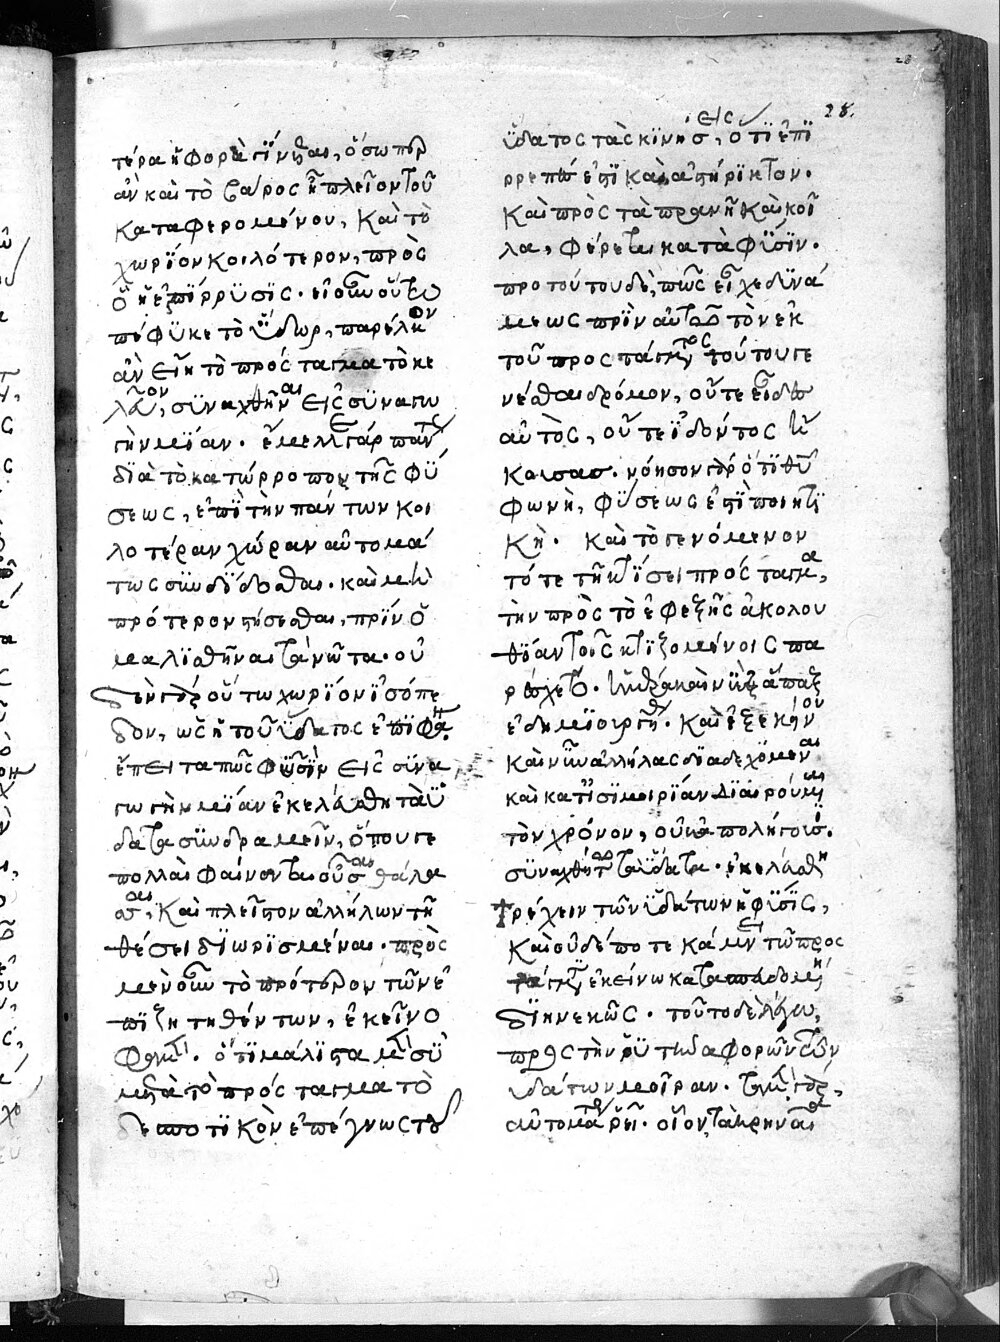 28.
τέρα ἡ φορὰ γίνεται, ὅσωπερ
ἂν καὶ τὸ βάρος ᾖ πλεῖον τοῦ
καταφερομένου, καὶ τὸ
χωρίον κοιλότερον, πρὸς
ὃ ἡ ἐπίρρυσις. εἰ οὖν οὕτω
πέφυκε τὸ ὕδωρ, παρέλκον
ἂν εἴη τὸ πρόσταγμα τὸ κε
λεῦον, συναχθῆναι εἰς συναγω
γὴν μίαν. ἔμελλε γὰρ πάντως
διὰ τὸ κατώρροπον τῆς φύ
σεως, ἐπὶ τὴν πάντων κοι
λοτέραν χώραν αὐτομά
τως συνδίδοσθαι. καὶ μὴ
πρότερον στήσεσθαι, πρὶν ὁ
μαλισθῆναι τὰ νῶτα. οὐ
δὲν γὰρ οὕτω χωρίον ἰσόπε
δον, ὡς ἡ τοῦ ὕδατος ἐπιφάνεια.
ἔπειτα πῶς φησὶν εἰς συνα
γωγὴν μίαν ἐκελεύσθη τὰ ὕ
δατα συνδραμεῖν, ὅπου γε
πολλαὶ φαίνονται οὖσαι θάλα
σσαι, καὶ πλεῖστον ἀλλήλων τῇ
θέσει διωρισμέναι. πρὸς
μὲν οὖν τὸ πρότερον τῶν ἐ
πιζητηθέντων, ἐκεῖνό
φαμεν. ὅτι μάλιστα μὲν σὺ
μετὰ τὸ πρόσταγμα τὸ
δεσποτικὸν ἐπέγνως τοῦ
ὕδατος τὰς κινήσεις, ὅτι ἐπι
ρρεπὲς ἐστὶ καὶ ἀστήρικτον.
καὶ πρὸς τὰ πρανῆ καὶ κοῖ
λα, φέρεται κατὰ φύσιν.
πρὸ τούτου δὲ, πῶς εἶχε δυνά
μεως πρὶν αὐτῶ τὸν ἐκ
τοῦ προστάγματος τούτου γε
νέσθαι δρόμον, οὔτε εἶδες
αὐτὸς, οὔτε ἰδόντος ἤ
κουσας. νόησον γὰρ ὅτι θεοῦ
φωνὴ, φύσεως ἐστὶ ποιητι
κή. καὶ τὸ γενόμενον
τότε τῇ κτίσει πρόσταγμα,
τὴν πρὸς τὸ ἐφεξῆς ἀκολου
θίαν τοῖς κτιζομένοις πα
ρέσχετο. ἡμέρα καὶ νὺξ ἅπαξ
ἐδημιουργήθη. καὶ ἐξ ἐκείνου
καὶ νῦν ἀλλήλας διαδεχόμεναι
καὶ κατ᾽ ἰσομοιρίαν διαιροῦμεναι
τὸν χρόνον, οὐκ ἀπολήγουσι.
συναχθήτω τὰ ὕδατα. ἐκελεύσθη
τρέχειν τῶν ὑδάτων ἡ φύσις,
καὶ οὐδέποτε κάμνει τῶ προς
τάγματι ἐκείνω κατασπευδομένη
διηνεκῶς. τοῦτο δὲ λέγω,
πρὸς τὴν ῥυτὴν ἀφορῶν τῶν
ὑδάτων μοῖραν. τὰ μὲν γὰρ,
αὐτομάτως ῥεῖ. οἷον, τὰ κρηναῖα